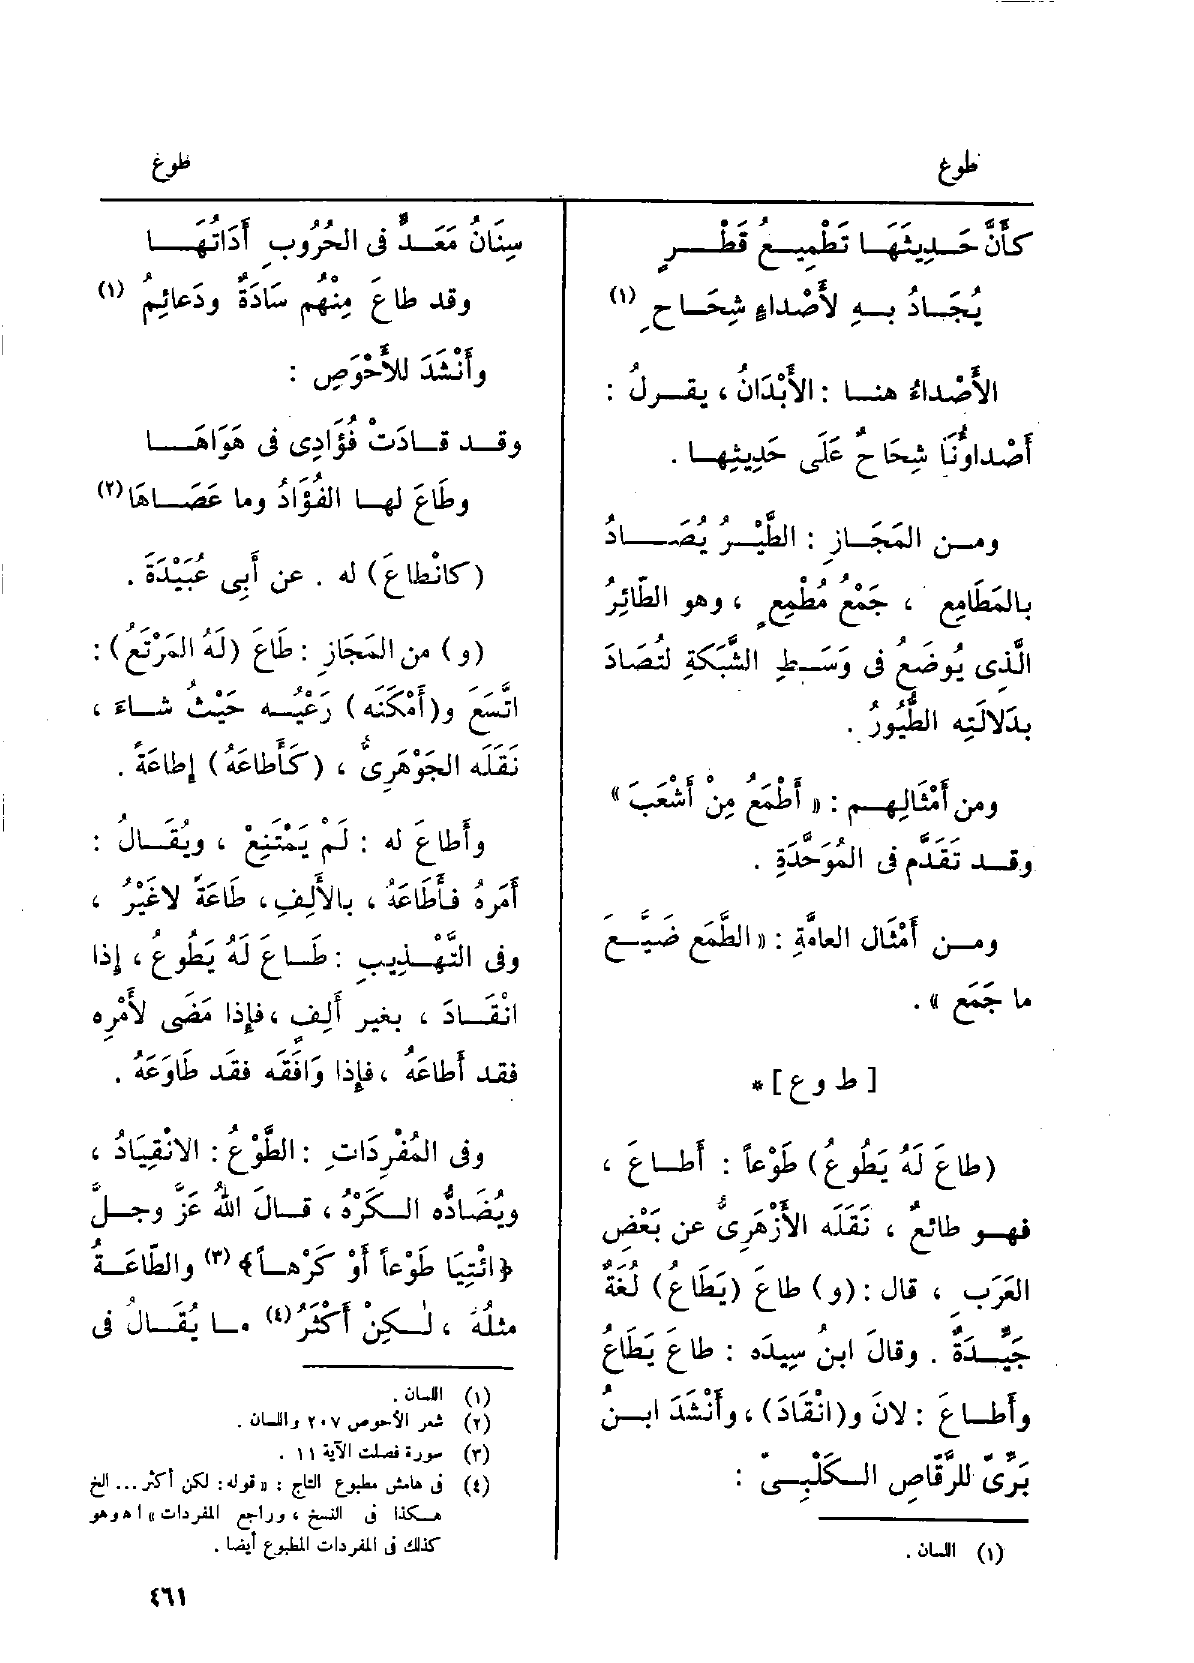 طوع
طوع
كَأَنَّ حَـدِيثَهَـا تَطْمِيـعُ قَطْـرٍ
يُجَـادُ بـهِ لأَصْداءٍ شِحَـاحِ (١)
الأَصْداءُ هنـا : الأَبْدَانُ ، يقـولُ :
أَصْداؤُنَا شِحَاحٌ عَلَى حَدِيثِهـا .
ومـن المَجَـازِ : الطَّيْـرُ يُصَـادُ
بالمَطَامِعِ ، جَمْعُ مُطْمِعٍ ، وهو الطّائِرُ
الَّذِى يُوضَعُ فى وَسَـطِ الشَّبَكَةِ لتُصَادَ
بدَلالَتِه الطُّيُورُ .
ومن أَمْثَالِهـم : « أَطْمَعُ مِنْ أَشْعَبَ »
وقـد تَقَدَّم فى المُوَحَّدَةِ .
ومـن أَمْثَال العامَّةِ : « الطَّمَع ضَيَّـعَ
ما جَمَع » .
[ ط و ع ] *
(طاعَ لَهُ يَطُوعُ) طَوْعاً : أَطـاعَ ،
فهـو طائعٌ ، نَقَلَه الأَزْهَرِىُّ عن بَعْضِ
العَرَبِ ، قال : (و) طاعَ (يَطَاعُ) لُغَةٌ
جَيِّـدَةٌ . وقالَ ابنُ سِيدَه : طاعَ يَطَاعُ
وأَطـاعَ : لانَ و(انْقَادَ) ، وأَنْشَدَ ابـنُ
بَرِّىّ للرَّقّاصِ الـكَلْبِـىّ :
(١) اللسان .
سِنَانُ مَعَـدٍّ فى الحُرُوبِ أَدَاتُهَـا
وقد طاعَ مِنْهُم سَادَةٌ ودَعائِمُ (١)
وأَنْشَدَ للأَحْوَصِ :
وقـد قـادَتْ فُؤَادِى فى هَوَاهَـا
وطَاعَ لهـا الفُؤَادُ وما عَصَـاهَا (٢)
(كانْطاعَ) له . عن أَبِى عُبَيْدَةَ .
(و) من المَجَازِ : طَاعَ (لَهُ المَرْتَعُ) :
اتَّسَعَ و(أَمْكَنَه) رَعْيُـه حَيْثُ شـاءَ ،
نَقَلَه الجَوْهَرِىُّ ، (كَأَطاعَهُ) إِطاعَةً .
وأَطاعَ له : لَمْ يَمْتَنِعْ ، ويُقَـالُ :
أَمَرهُ فـأَطَاعَهُ ، بالأَلِفِ ، طَاعَةً لاغَيْرُ ،
وفى التَّهْـذِيبِ : طَـاعَ لَهُ يَطُوعُ ، إِذا
انْقَـادَ ، بغير أَلِفٍ ، فإِذا مَضَى لأَمْرِه
فقد أَطاعَهُ ، فإِذا وَافَقَه فقَد طَاوَعَهُ .
وفى المُفْرِدَاتِ : الطَّوْعُ : الانْقِيَادُ ،
ويُضَادُّه الـكَرْهُ ، قـالَ اللهُ عَزَّ وجـلَّ
﴿ائْتِيَا طَوْعاً أَوْ كَرْهـاً﴾ (٣) والطَّاعَـةُ
مثلُهُ ، لٰـكِنْ أَكْثَرُ (٤) مـا يُقَـالُ فى
(١) اللسان .
(٢) شعر الأحوص ٢٠٧ واللسان .
(٣) سورة فصلت الآية ١١ .
(٤) فى هامش مطبوع التاج : « قوله : لكن أكثر ... الخ
هـكذا فى النسخ ، وراجع المفردات » ا ه وهو
كذلك فى المفردات المطبوع أيضا .
٤٦١